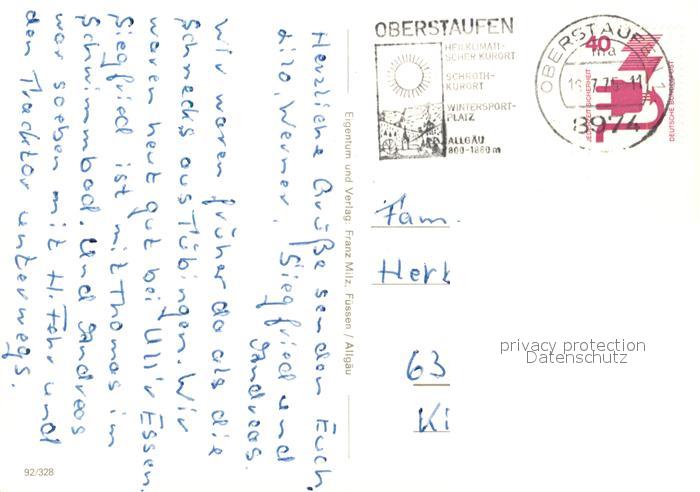 Herzliche Grüße senden Euch
Werner, Siegfried und
Andreas.
Wir waren früher da als die
Schnecks aus Tübingen. Wir
waren heut gut bei Ulli's Essen.
Siegfried ist mit Thomas im
Schwimmbad. Und Andreas
war soeben mit H. Fehr und
den Tracktor unterwegs.
92/328
Eigentum und Verlag: Franz Milz, Füssen / Allgäu
OBERSTAUFEN
HEILKLIMATI-
SCHER KURORT
SCHROTH-
KURORT
WINTERSPORT-
PLATZ
ALLGÄU
800-1860 m
OBERSTAUFEN
7.75-11
8974
40
DEUTSCHE BUNDESPOST
Fam.
Herb
63
Ki
privacy protection
Datenschutz